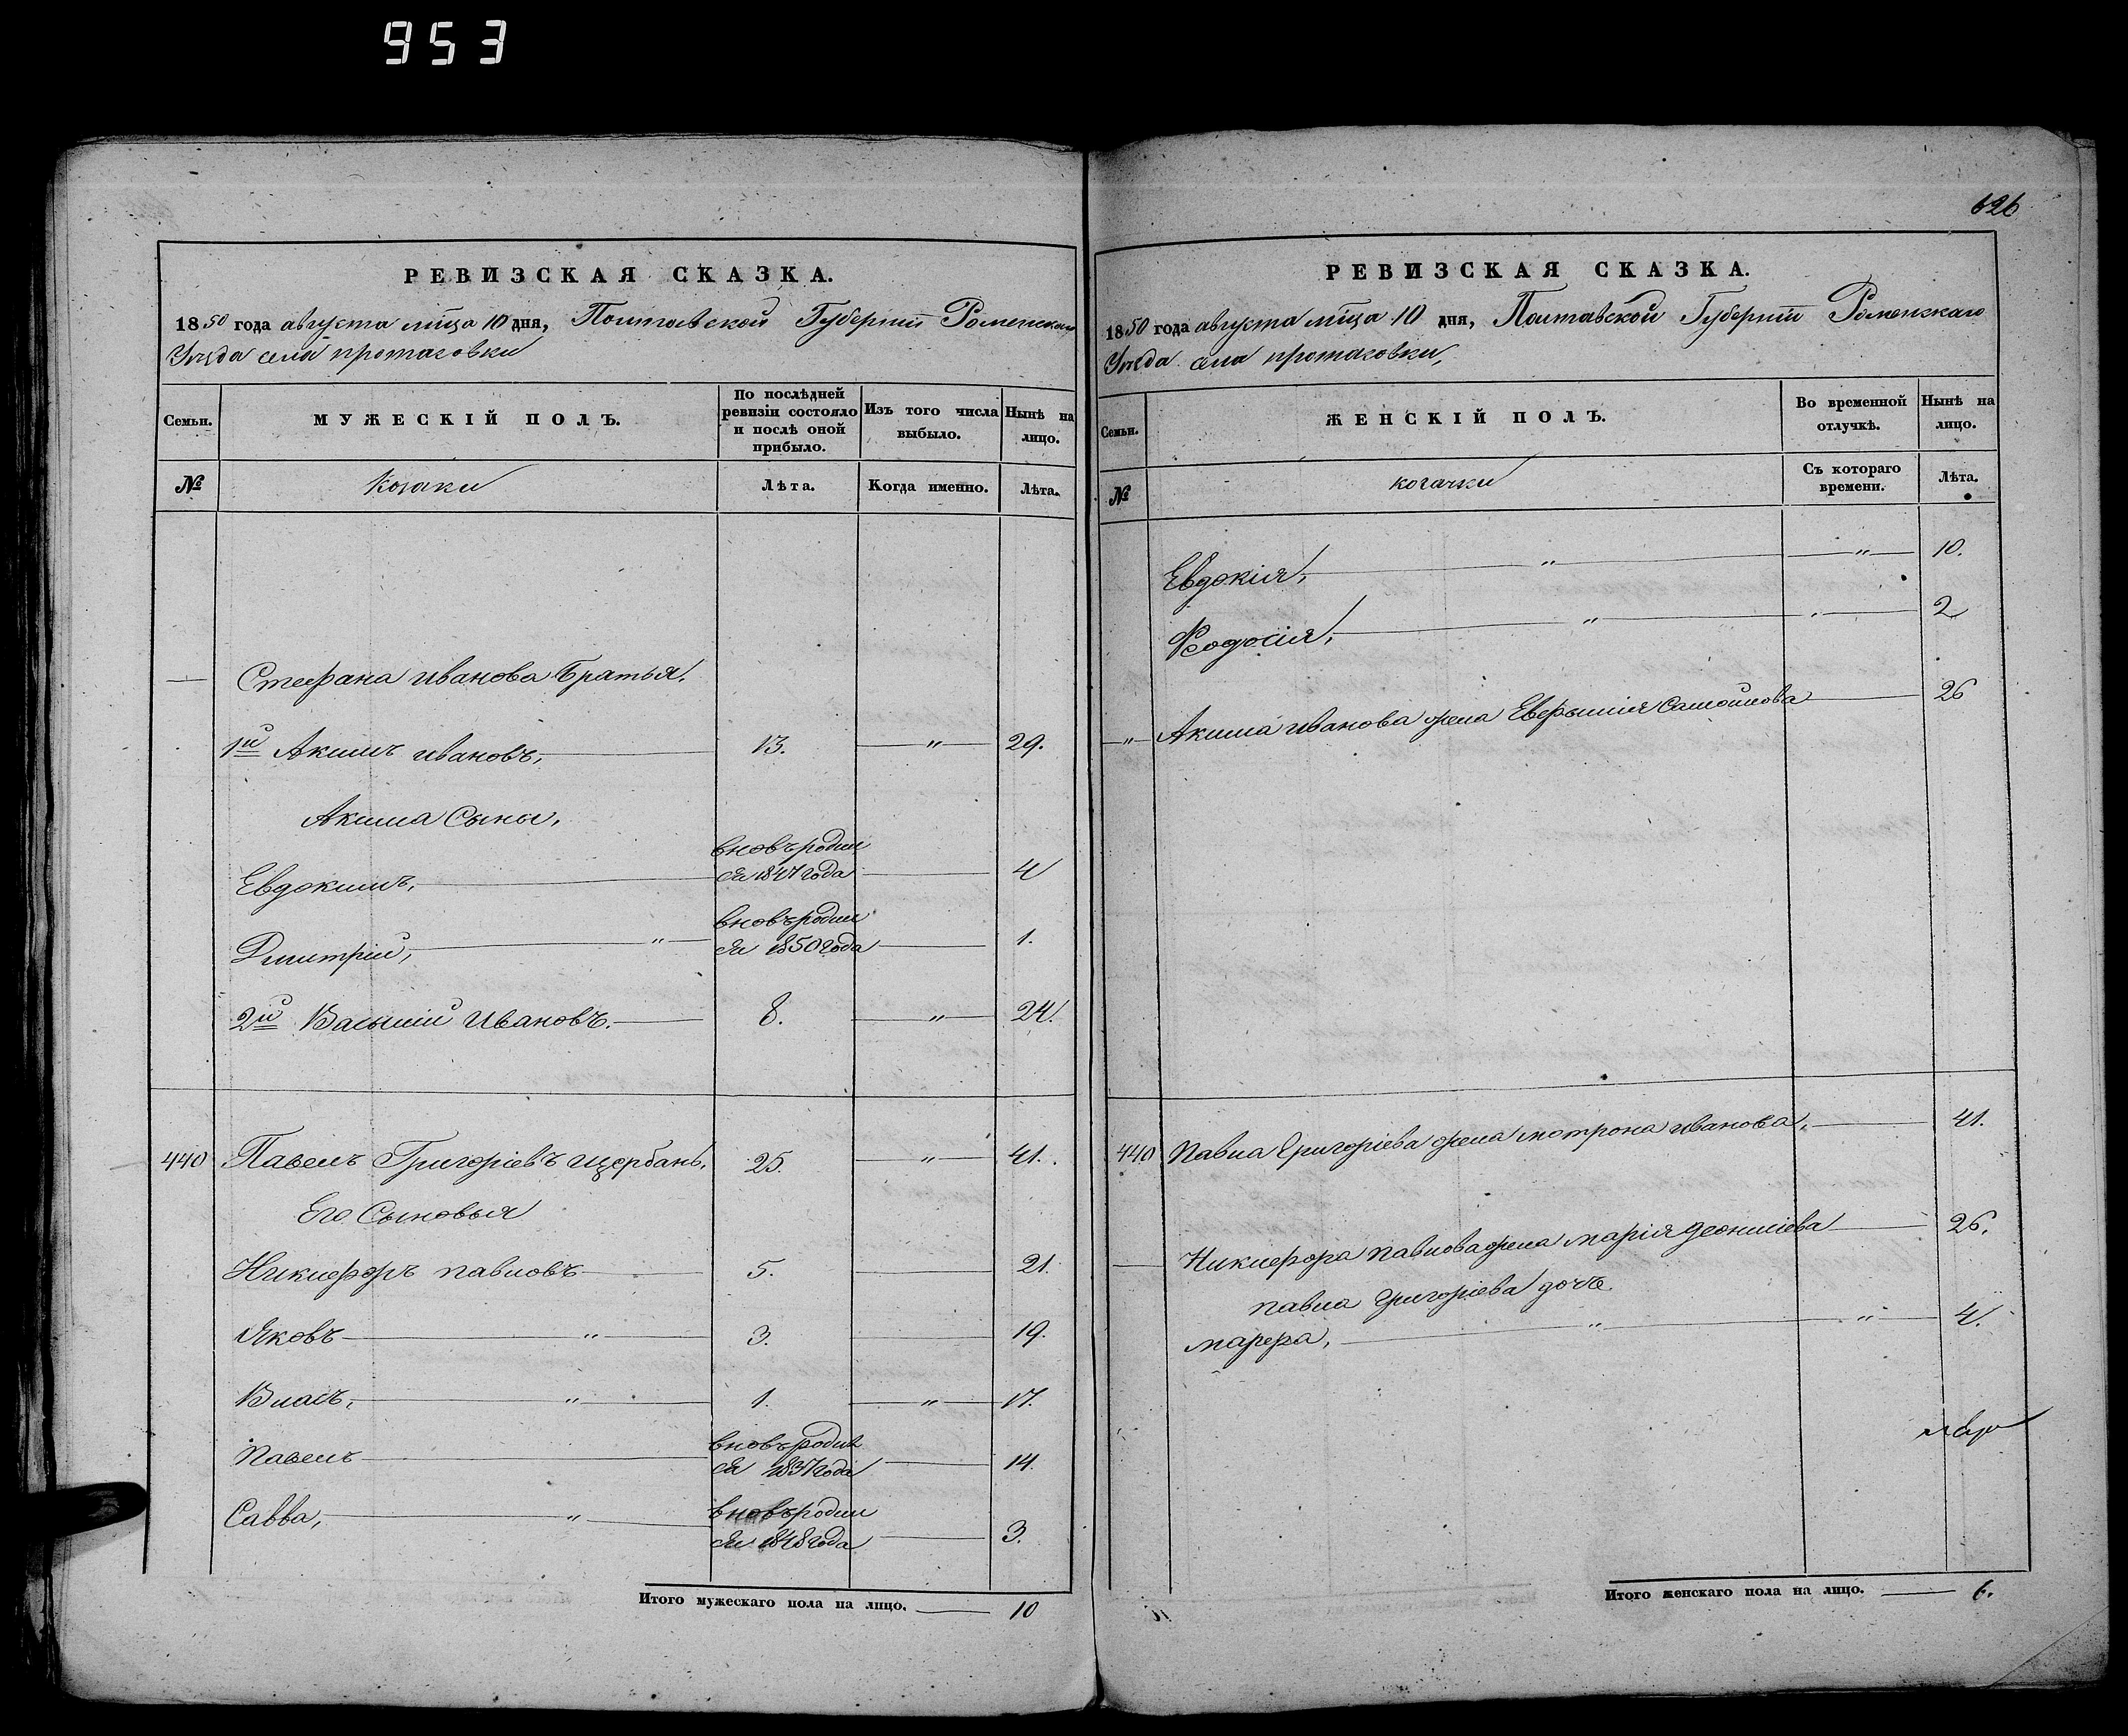 953
РЕВИЗСКАЯ СКАЗКА.
1850 года августа мѣца 10 дня, Полтавской Губерніи Роменскаго
Уѣзда села протасовки
Семьи.
МУЖЕСКІЙ ПОЛЪ.
По послѣдней ревизіи состояло и послѣ оной прибыло.
Изъ того числа выбыло.
Нынѣ на лицо.
№
козаки
Лѣта.
Когда именно.
Лѣта.
Стефана иванова братья.
1й Акимъ ивановъ, 13. " 29.
Акима Сыны,
Евдокимъ, вновь родил
ся 1847 года 4
Дмитрій, " вновь родил
ся 1850 года 1.
2й Василій Ивановъ. 8. " 24.
440 Павелъ Григоріевъ щербань, 25. " 41.
Его Сыновья
Никифоръ павловъ 5. 21.
Яковъ " 3. 19.
Власъ, " 1. " 17.
Павелъ вновь родил
ся 1837 года 14.
Савва, " вновь родил
ся 1848 года 3.
Итого мужескаго пола на лицо. 10
626
РЕВИЗСКАЯ СКАЗКА.
1850 года августа мѣца 10 дня, Полтавской Губерніи Роменскаго
Уѣзда села протасовки,
Семьи.
ЖЕНСКІЙ ПОЛЪ.
Во временной отлучкѣ.
Нынѣ на лицо.
№
козачки
Съ котораго времени.
Лѣта.
Евдокія, " " 10.
Феодосія, " 2
" Акима иванова жена Евфимія Самойлова 26
440 Павла Григоріева жена мотрона иванова, 41.
Никифора павлова жена марія деонисіева 26.
павла Григоріева дочь
марфа, " " 4.
Итого женскаго пола на лицо. 6.